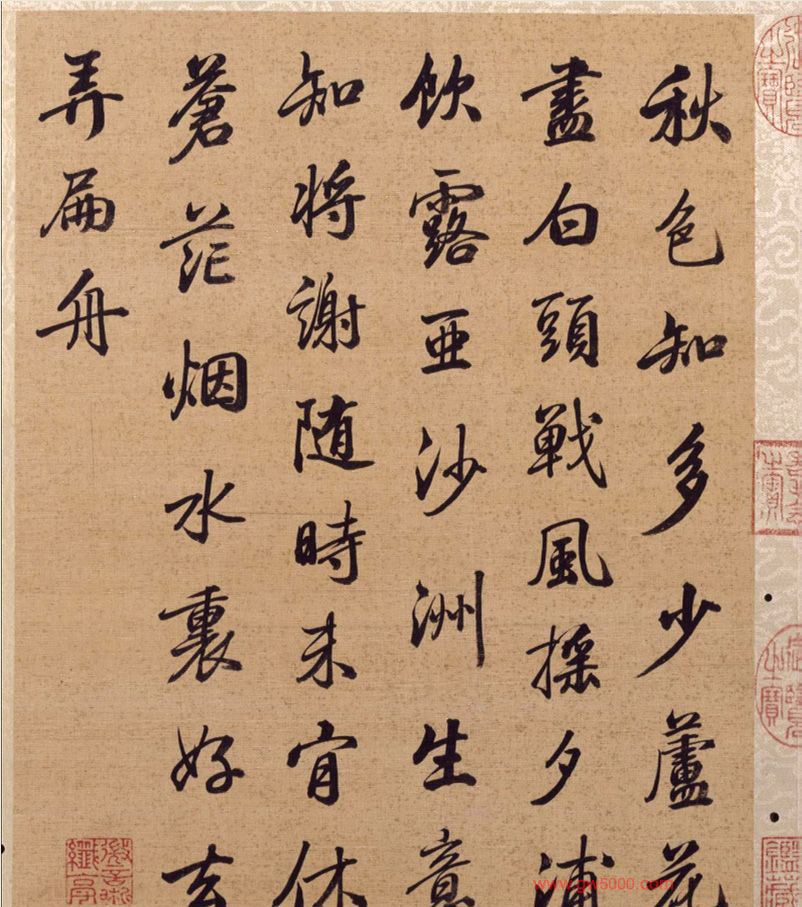 秋色知多少蘆花
盡白頭戰風摇夕浦
飲露亞沙洲生意
知將謝随時未肎休
蒼茫烟水裏好去
弄扁舟